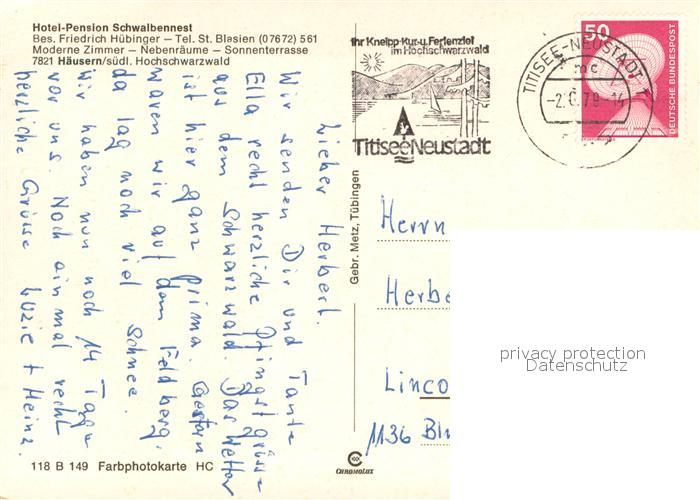 Hotel-Pension Schwalbennest
Bes. Friedrich Hübinger — Tel. St. Blasien (07672) 561
Moderne Zimmer — Nebenräume — Sonnenterrasse
7821 Häusern/südl. Hochschwarzwald
Lieber Herbert.
Wir senden Dir und Tante
Ella recht herzliche Pfingstgrüsse
aus dem Schwarzwald. Das Wetter
ist hier ganz prima. Gestern
waren wir auf dem Feldberg,
da lag noch viel Schnee.
Wir haben nun noch 14 Tage
vor uns. Noch einmal recht
herzliche Grüsse Luzie + Heinz.
118 B 149 Farbphotokarte HC
Gebr. Metz, Tübingen
CHROMOLUX
Ihr Kneipp-Kur-u. Ferienziel
im Hochschwarzwald
Titisee Neustadt
TITISEE-NEUSTADT 1
mc
50
DEUTSCHE BUNDESPOST
Herrn
Herbe
Linco
1136
privacy protection
Datenschutz